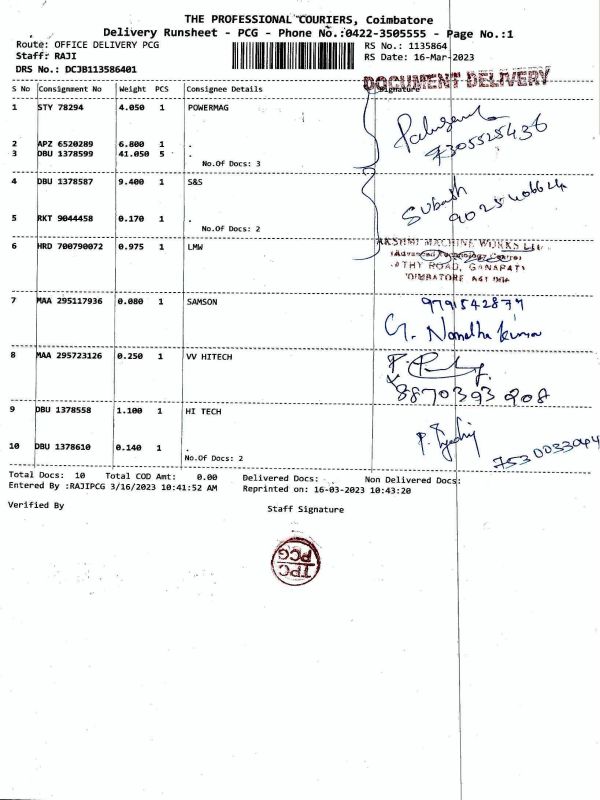 THE PROFESSIONAL COURIERS, Coimbatore
Delivery Runsheet - PCG - Phone No.:0422-3505555 - Page No.:1
Route: OFFICE DELIVERY PCG RS No.: 1135864
Staff: RAJI RS Date: 16-Mar-2023
DRS No.: DCJB113586401
DOCUMENT DELIVERY
S No Consignment No Weight PCS Consignee Details Signature
1 STY 78294 4.050 1 POWERMAG
7305525436
2 APZ 6520289 6.800 1 .
3 DBU 1378599 41.050 5 .
No.Of Docs: 3
4 DBU 1378587 9.400 1 S&S
Subash
5 RKT 9044458 0.170 1 .
No.Of Docs: 2
6 HRD 700790072 0.975 1 LMW
MACHINE WORKS
ATHY ROAD, GANAPATI
7 MAA 295117936 0.080 1 SAMSON
9791542877
G. Nanetha kumar
8 MAA 295723126 0.250 1 VV HITECH
8870393908
9 DBU 1378558 1.100 1 HI TECH
10 DBU 1378610 0.140 1 .
7530033094
No.Of Docs: 2
Total Docs: 10 Total COD Amt: 0.00 Delivered Docs: Non Delivered Docs:
Entered By :RAJIPCG 3/16/2023 10:41:52 AM Reprinted on: 16-03-2023 10:43:20
Verified By Staff Signature
TPC
PCG